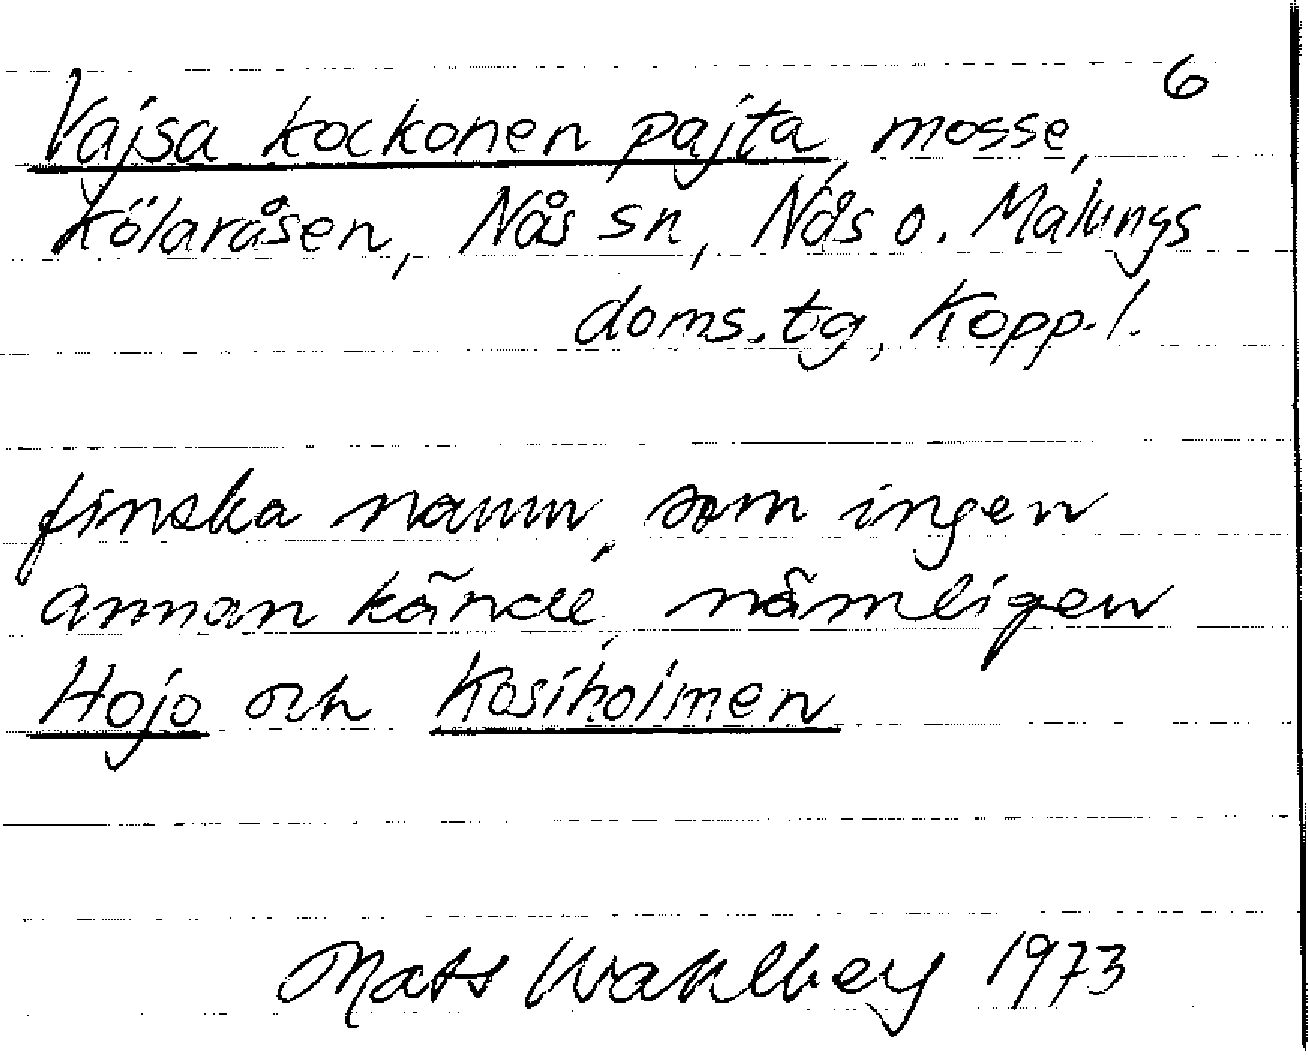 6
Vajsa kockonen pajta, mosse,
Kölaråsen, Nås sn, Nås o. Malungs
doms.tg, Kopp.l.
finska namn, som ingen
annan kände, nämligen
Hojo och Kosiholmen
Mats Wahlberg 1973